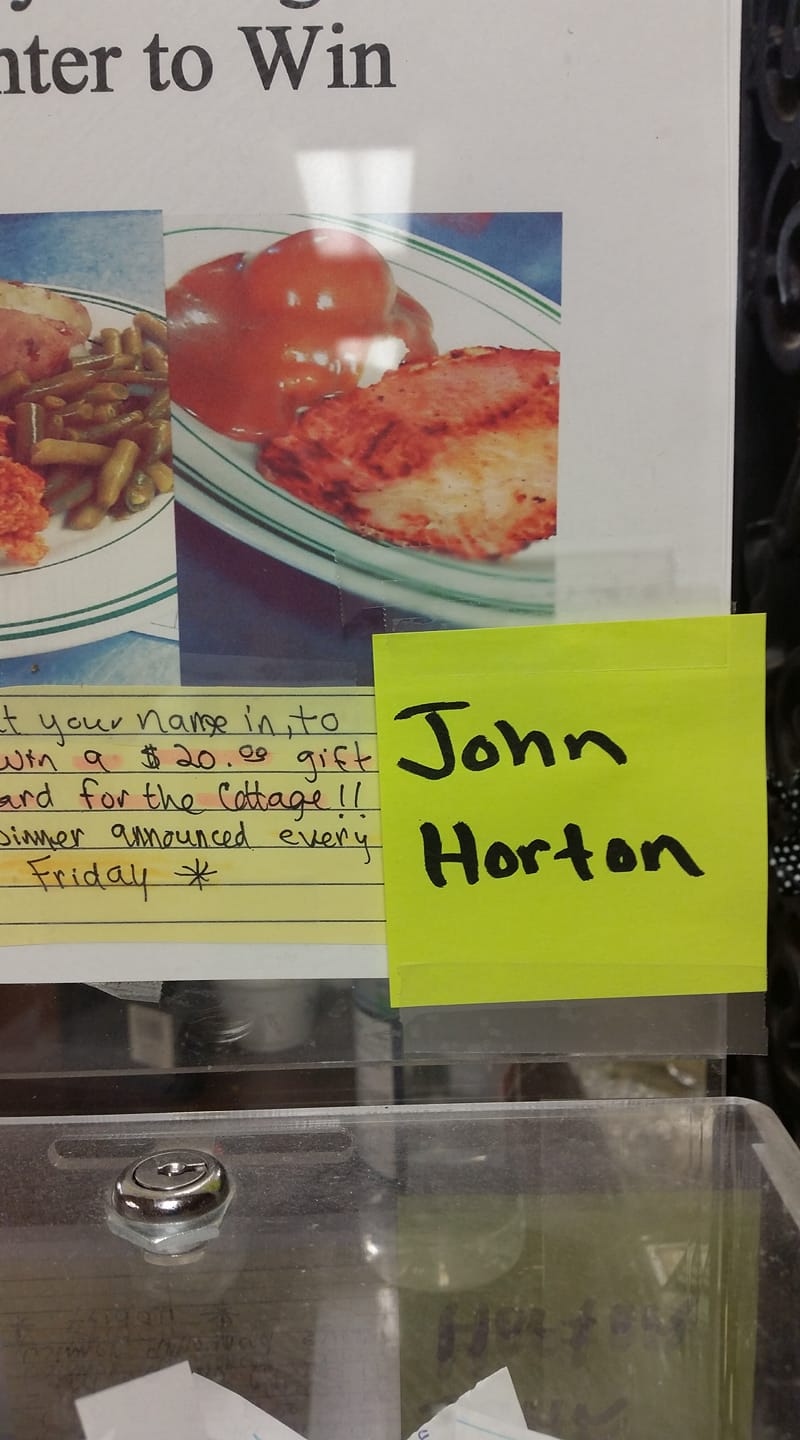 nter to Win
t your name in, to
win a $20.00 gift
ard for the Cottage!!
Winner announced every
Friday *
John
Horton